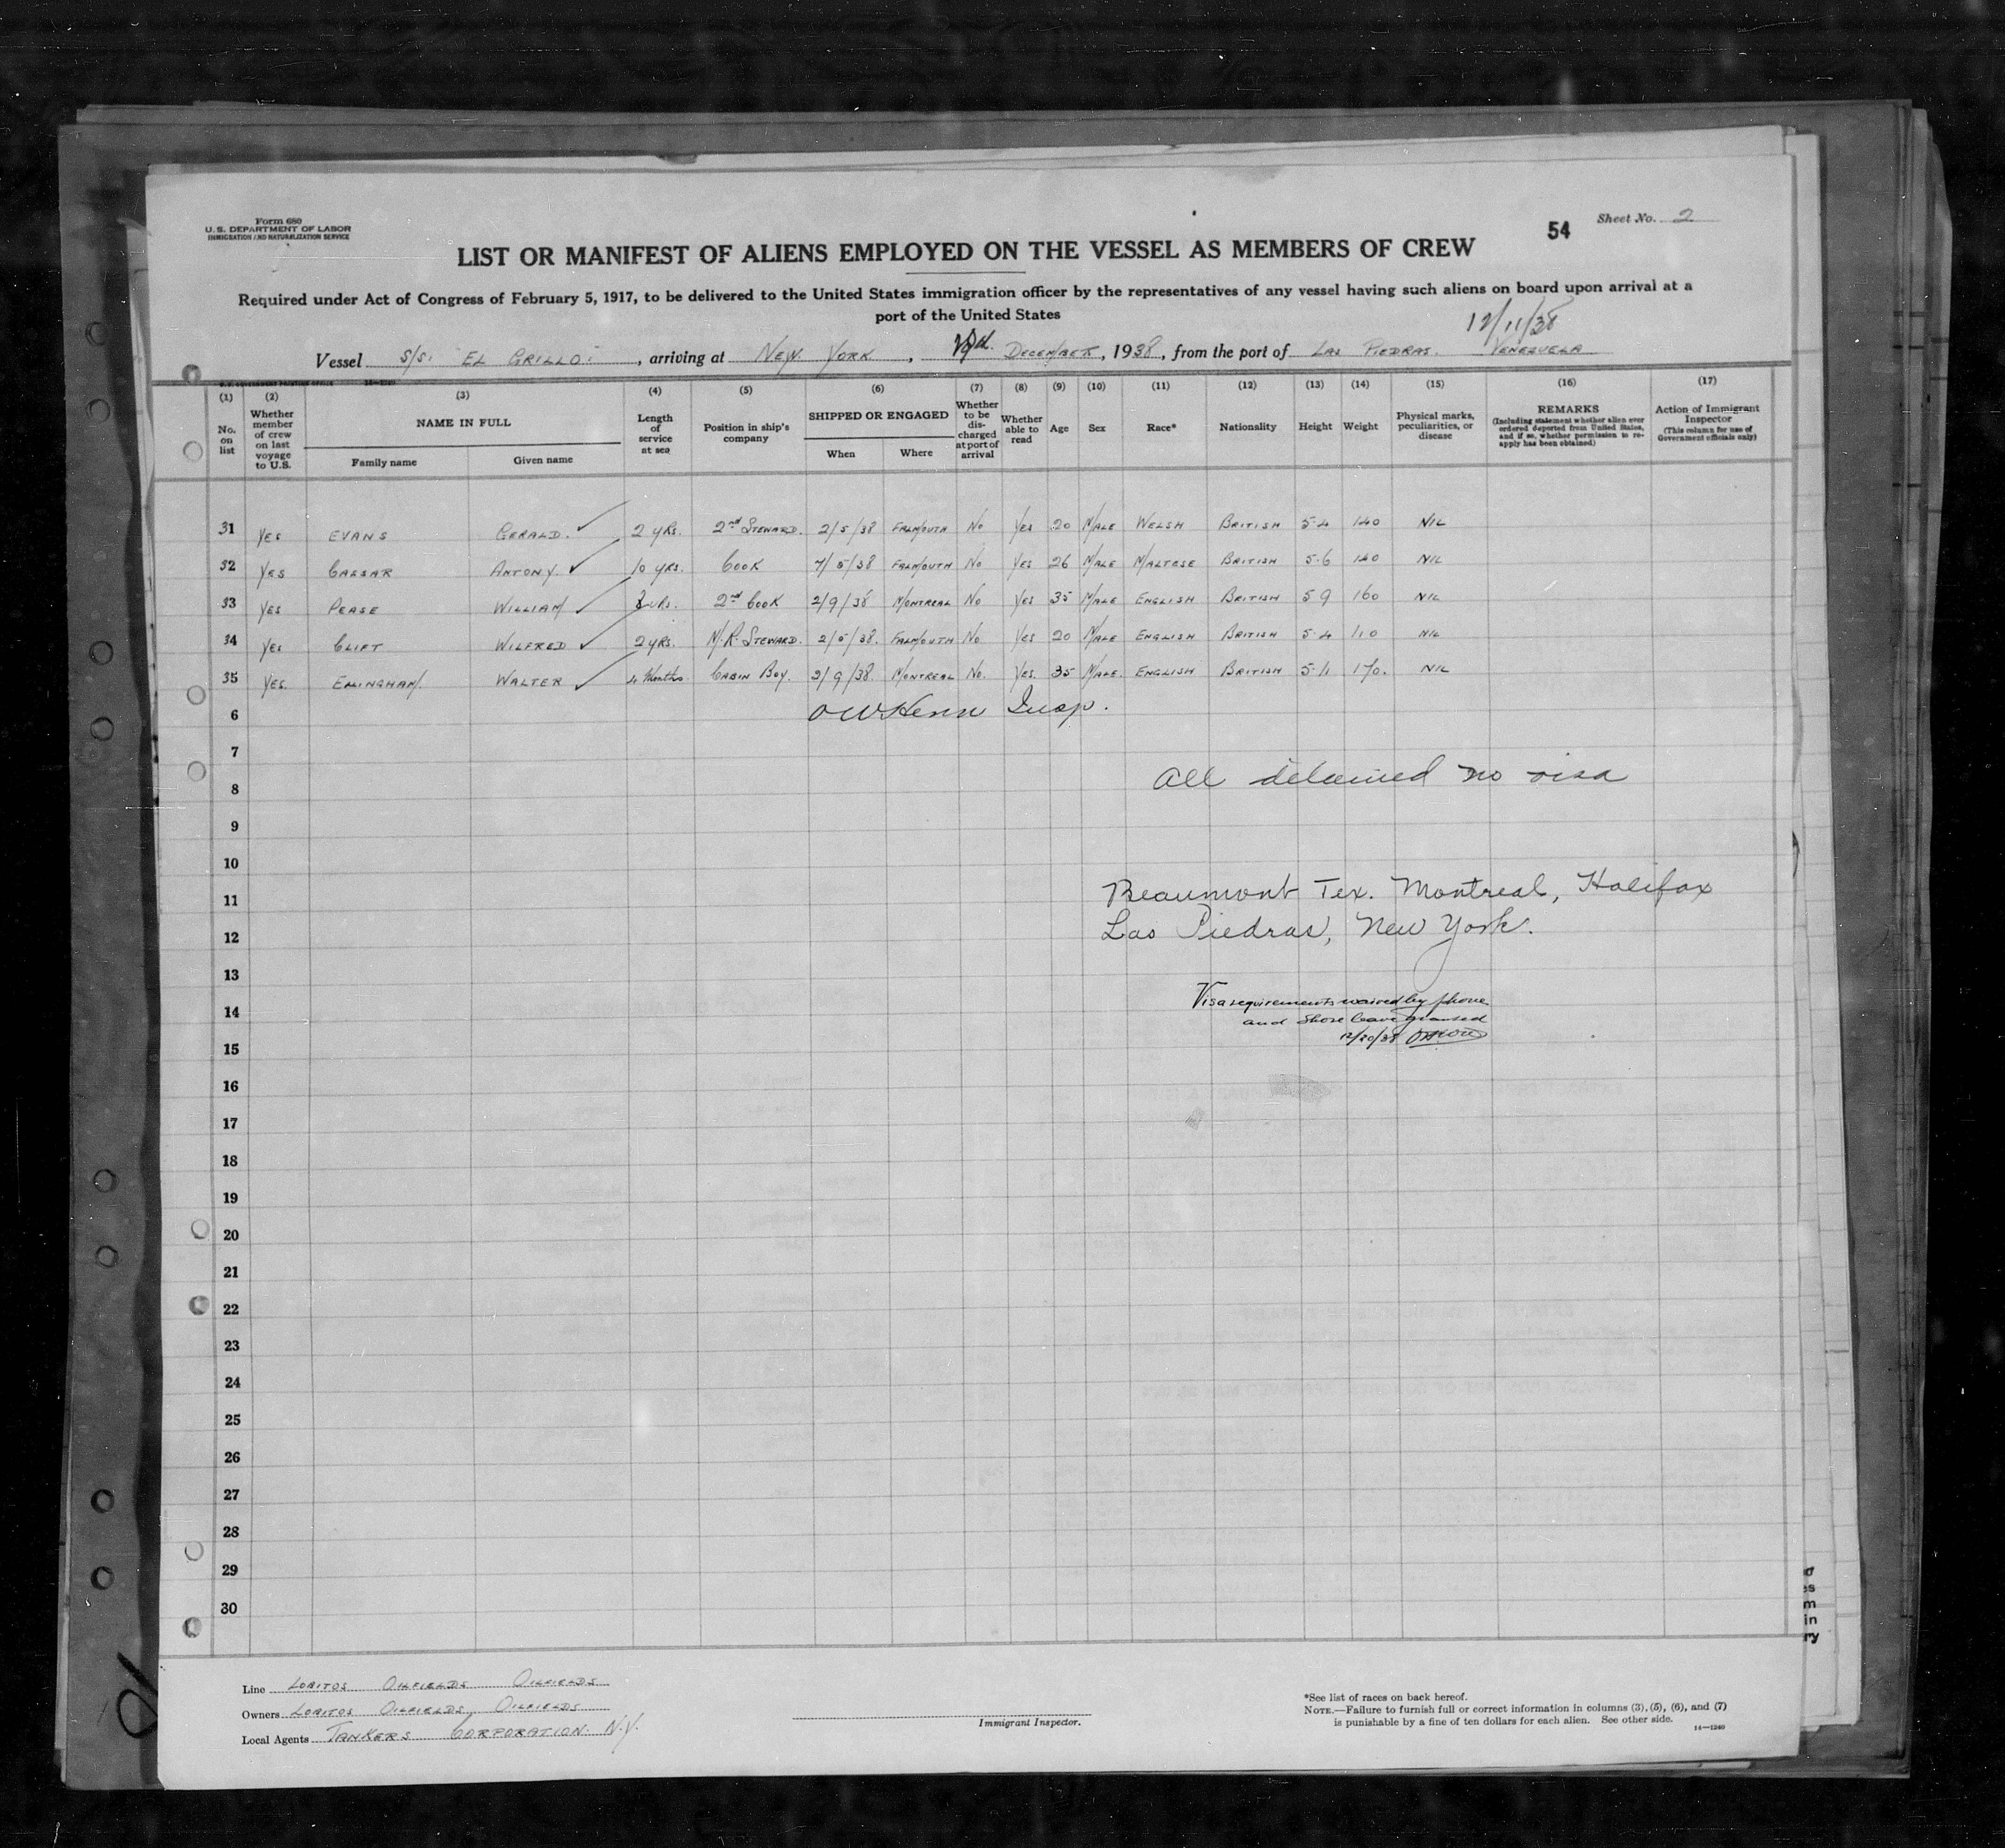 Form 680
U. S. DEPARTMENT OF LABOR
IMMIGRATION AND NATURALIZATION SERVICE
54
Sheet No. 2
LIST OR MANIFEST OF ALIENS EMPLOYED ON THE VESSEL AS MEMBERS OF CREW
Required under Act of Congress of February 5, 1917, to be delivered to the United States immigration officer by the representatives of any vessel having such aliens on board upon arrival at a
port of the United States
12/11/38
Vessel S/S. EL GRILLO. , arriving at NEW YORK , DECEMBER, 1938, from the port of LAS PIEDRAS. VENEZUELA
(1) (2) (3) (4) (5) (6) (7) (8) (9) (10) (11) (12) (13) (14) (15) (16) (17)
No. on list
Whether member of crew on last voyage to U.S.
NAME IN FULL
Family name Given name
Length of service at sea
Position in ship's company
SHIPPED OR ENGAGED
When Where
Whether to be discharged at port of arrival
Whether able to read
Age
Sex
Race*
Nationality
Height
Weight
Physical marks, peculiarities, or disease
REMARKS
(Including statement whether alien ever ordered deported from United States, and if so, whether permission to re-apply has been obtained)
Action of Immigrant Inspector
(This column for use of Government officials only)
31 YES EVANS GERALD. ✓ 2 YRS. 2nd STEWARD. 2/5/38 FALMOUTH NO YES 20 MALE WELSH BRITISH 5-4 140 NIL
32 YES CAESAR ANTONY. ✓ 10 YRS. COOK 7/5/38 FALMOUTH NO YES 26 MALE MALTESE BRITISH 5-6 140 NIL
33 YES PEASE WILLIAM ✓ YRS. 2nd COOK 2/9/38 MONTREAL NO YES 35 MALE ENGLISH BRITISH 5 9 160 NIL
34 YES CLIFT WILFRED ✓ 2 YRS. M.R. STEWARD. 2/5/38. FALMOUTH NO YES 20 MALE ENGLISH BRITISH 5-4 110 NIL
35 YES. ELLINGHAM. WALTER ✓ 4 Months. CABIN BOY. 2/9/38. MONTREAL NO. YES. 35 MALE. ENGLISH BRITISH 5-11 170. NIL
6 Insp.
7
8 All detained no visa
9
10
11 Beaumont Tex. Montreal, Halifax
12 Las Piedras, New York.
13
14 Visa requirements waived by phone
and shore leave granted
15 12/20/38
16
17
18
19
20
21
22
23
24
25
26
27
28
29
30
Line LOBITOS OILFIELDS OILFIELDS
Owners LOBITOS OILFIELDS, OILFIELDS
Local Agents TANKERS CORPORATION N.Y.
Immigrant Inspector.
*See list of races on back hereof.
NOTE.—Failure to furnish full or correct information in columns (3), (5), (6), and (7)
is punishable by a fine of ten dollars for each alien. See other side.
14—1240